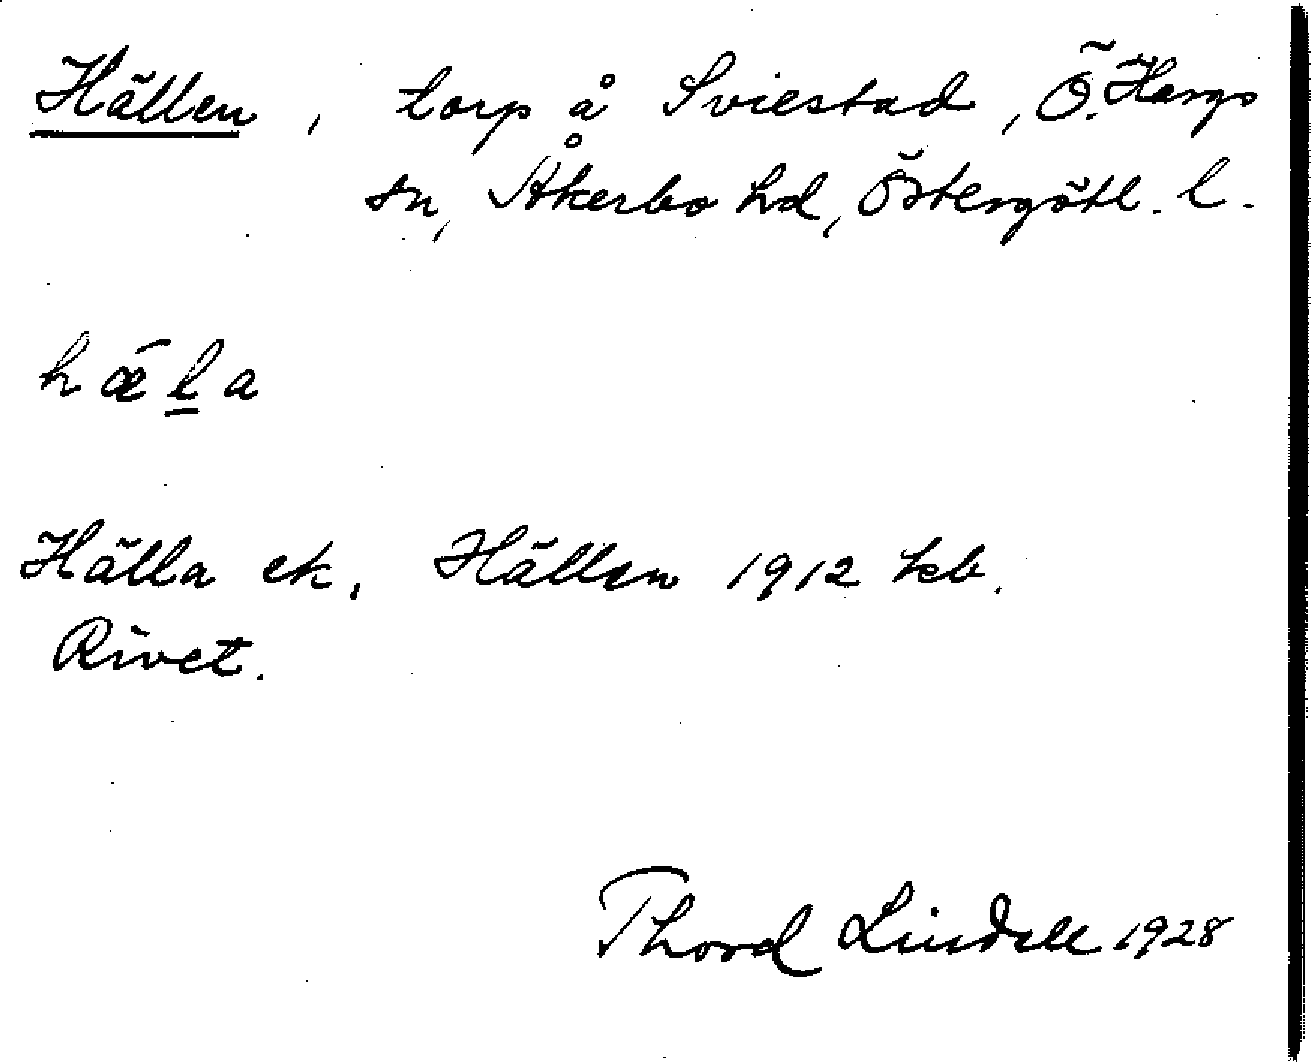 Hällen, torp å Sviestad, Ö. Hargs
sn, Åkerbo hd, Östergötl. l.
hǽl̲a
Hälla ek, Hällen 1912 kb.
Rivet.
Thord Lindell 1928